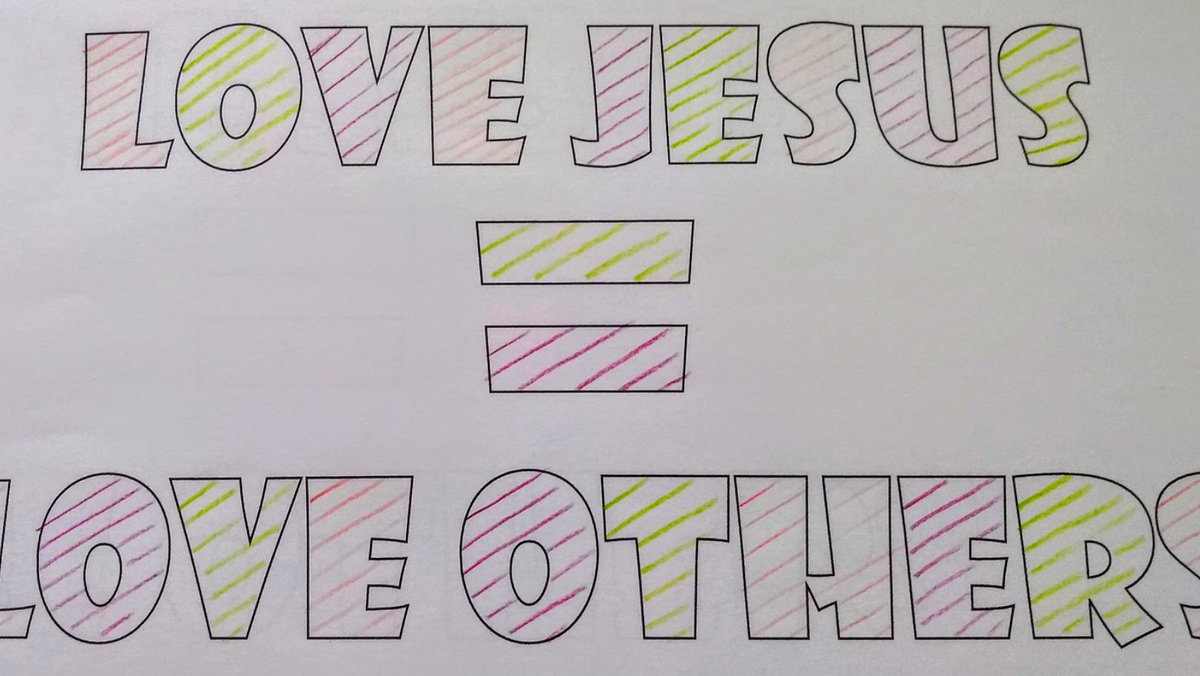 LOVE JESUS
=
LOVE OTHERS